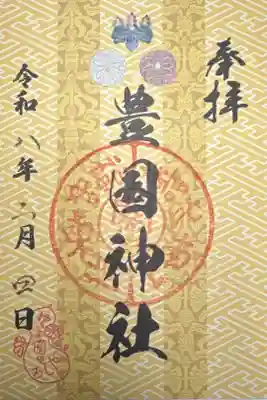 奉拝
豊国神社
令和八年六月四日